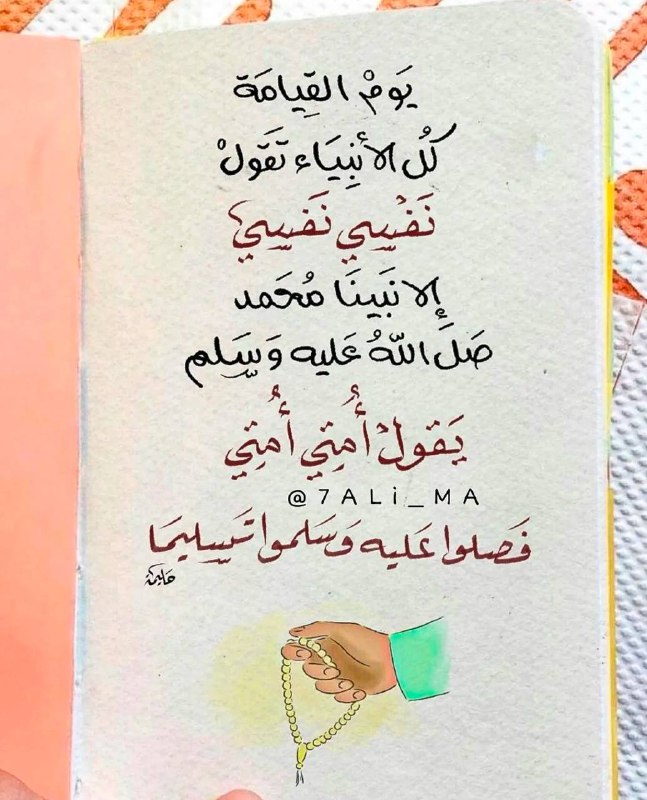 يَومْ القِيامَة
كُل الأنبِيَاء تَقولْ
نَفْسِي نَفسِي
إلا نَبينَا مُحَمد
صَلَ اللّهُ عَليه وَسَلم
يَقولْ أُمتِي أُمتِي
@7ALi_MA
فَصلوا عَليه وَسَلموا تَسليمَا
حليمة